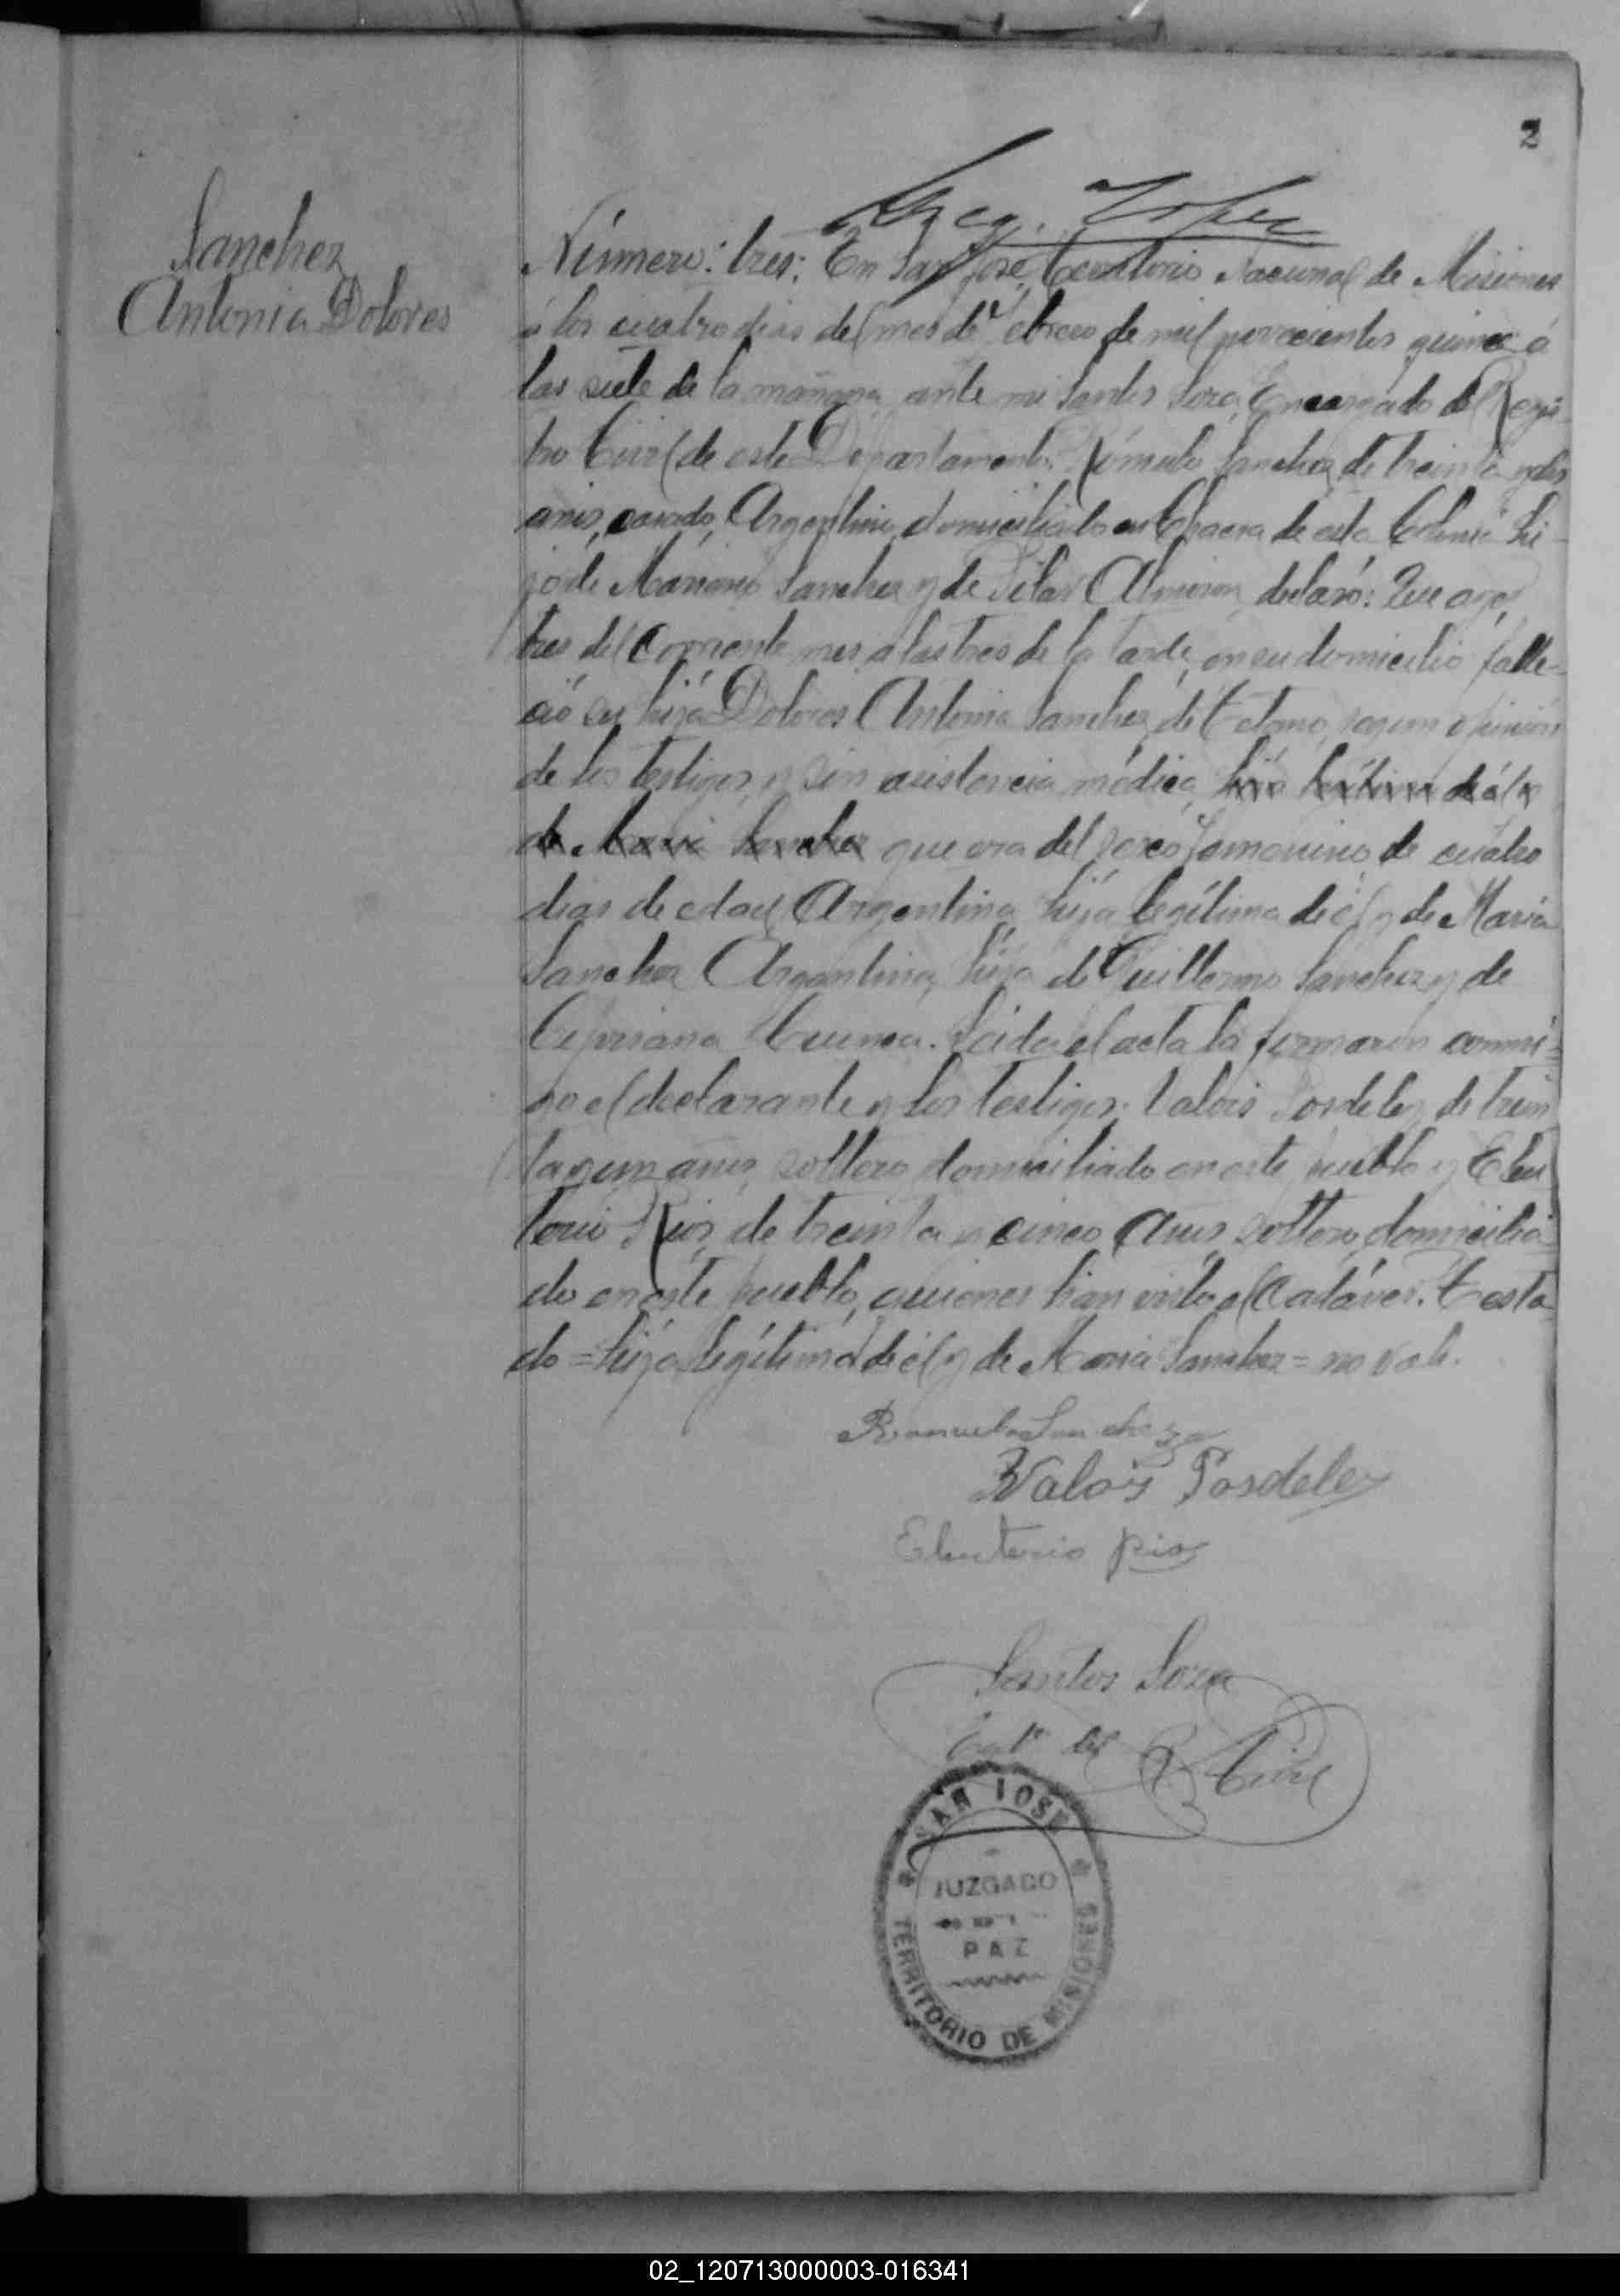 2
Sanchez
Antonia Dolores
Número: tres: En San José, Territorio Nacional de Misiones
á los cuatro dias del mes de Febrero de mil novecientos quince á
las siete de la mañana, ante mi Santos Soza, Encargado del Regis-
tro Civil de este Departamento. Rómulo Sanchez, de treinta y dos
años, casado, Argentino, domiciliado en Chacra de esta Colonia hi-
jo de Mariano Sanchez y de Pilar Almiron, declaró: Que ayer
tres del corriente mes a las tres de la tarde, en su domicilio falle-
ció su hija Dolores Antonia Sanchez, de Tetano, segun opinión
de los testigos, y sin asistencia médica, hija legítima de él y
de Maria Sanchez que era del sexo femenino, de cuatro
dias de edad, Argentina, hija legítima de él y de Maria
Sanchez Argentina, hija de Guillermo Sanchez y de
Cipriana Cuenca. Leida el acta la firmaron conmi-
go el declarante y los testigos: Valois Posdeley de trein
ta y un años, soltero domiciliado en este pueblo y Eleu
terio Rios, de treinta y cinco años, soltero, domicilia-
do en este pueblo, quienes han visto el cadáver. Testa-
do = hija legítima de él y de Maria Sanchez = no vale.
Romulo Sanchez
Valois Posdeley
Eleuterio Rios
Santos Soza
Enc.º del R. Civil
SAN JOSE
JUZGADO
PAZ
TERRITORIO DE MISIONES
02_120713000003-016341